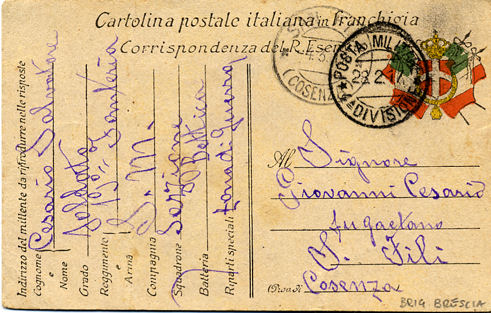 Cartolina postale italiana in franchigia
Corrispondenza del R. Eserc
(COSENZ
POSTA MILITA
2.
DIVISIONE
Indirizzo del mittente da riprodurre nelle risposte
Cognome Cesario Salvatore
e
Nome
Grado Soldato
Reggimento 19° Fanteria
e
Arma
Compagnia S. M.
Squadrone Sezione
Batteria
Riparti speciali Zona di guerra
Al Signore
Giovanni Cesario
fu Gaetano
S. Fili
(Prov. di Cosenza
BRIG. BRESCIA